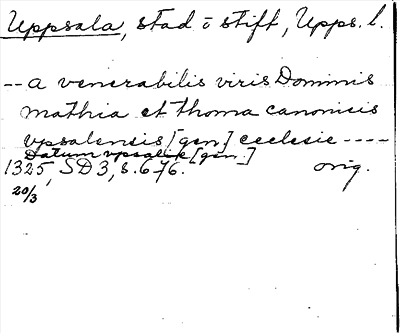 Uppsala, stad o stift, Upps. l.
-- a venerabilis viris Dominis
mathia et thoma canonicis
vpsalensis [gen] ecclesie ----
Datum vpsalie [gen_]
1325, SD 3, s. 676. orig.
20/3